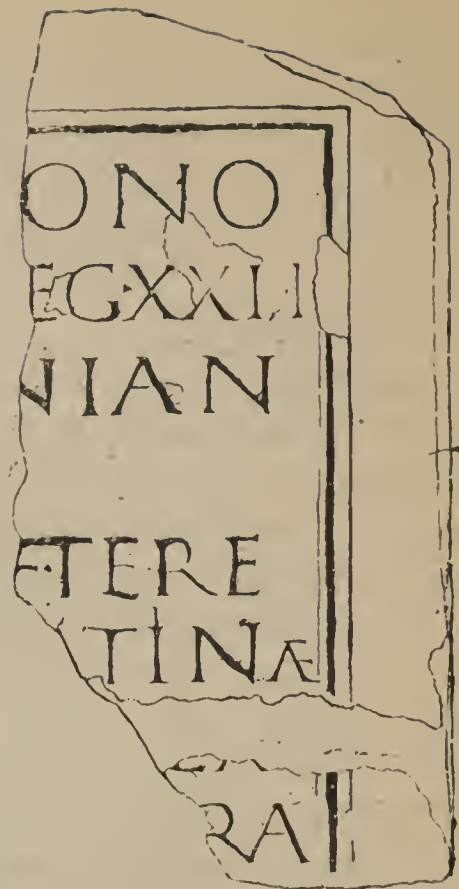 ONO
EGXXII
NIAN
ETERE
TINÆ
RA